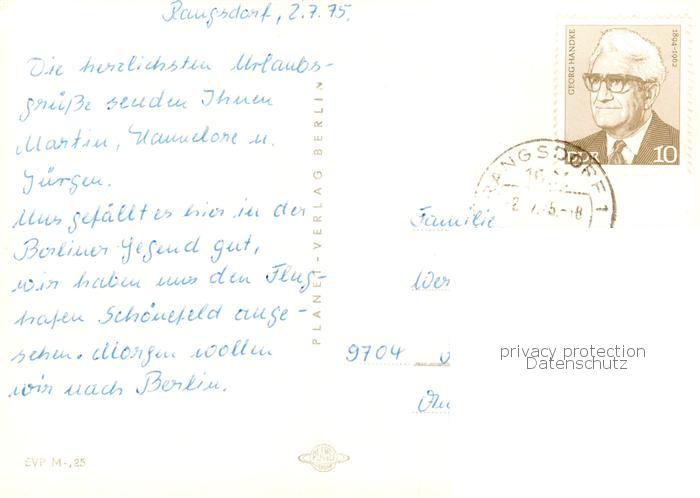 Rangsdorf, 2.7.75.
Die herzlichsten Urlaubs-
grüße senden Ihnen
Martin, Hannelore u.
Jürgen.
Uns gefällt es hier in der
Berliner Gegend gut,
wir haben uns den Flug-
hafen Schönefeld ange-
sehen. Morgen wollen
wir nach Berlin.
EVP M -,25
PLANET-VERLAG BERLIN
GEORG HANDKE
1894-1962
DDR 10
RANGSDORF 1
Familie
9704
privacy protection
Datenschutz